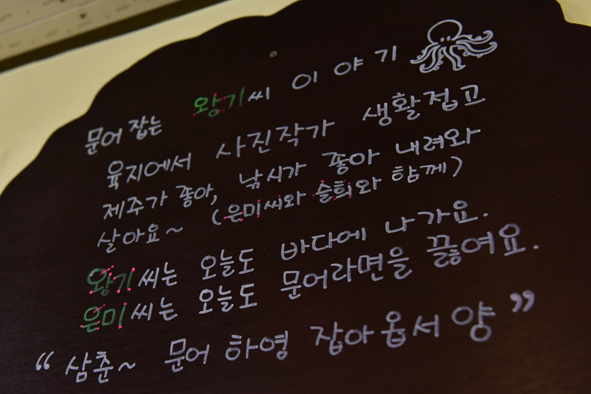 문어 잡는 왕기씨 이야기
육지에서 사진작가 생활접고
제주가 좋아, 낚시가 좋아 내려와
살아요~ (은미씨와 슬희와 함께)
왕기씨는 오늘도 바다에 나가요.
은미씨는 오늘도 문어라면을 끓여요.
“삼춘~ 문어 하영 잡아옵서양”